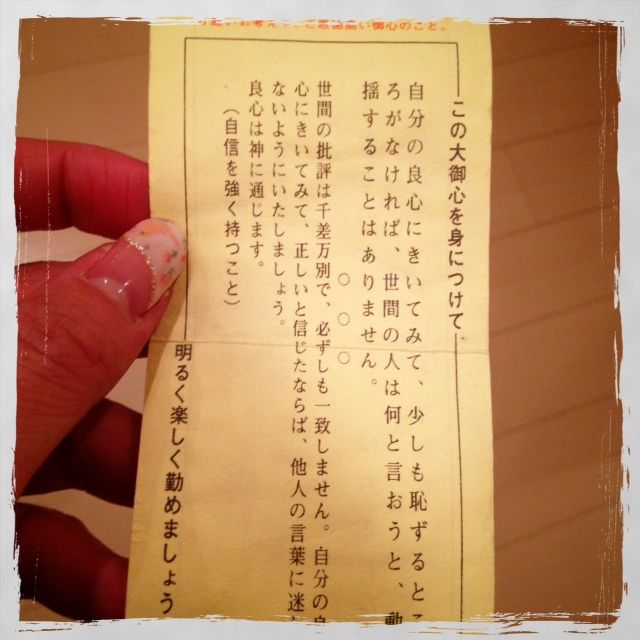 お考えで、ご思召高い御心のこと。
この大御心を身につけて
自分の良心にきいてみて、少しも恥ずるとこ
ろがなければ、世間の人は何と言おうと、動
揺することはありません。
○○○
世間の批評は千差万別で、必ずしも一致しません。自分の良
心にきいてみて、正しいと信じたならば、他人の言葉に迷わ
ないようにいたしましょう。
良心は神に通じます。
（自信を強く持つこと）
明るく楽しく勤めましょう